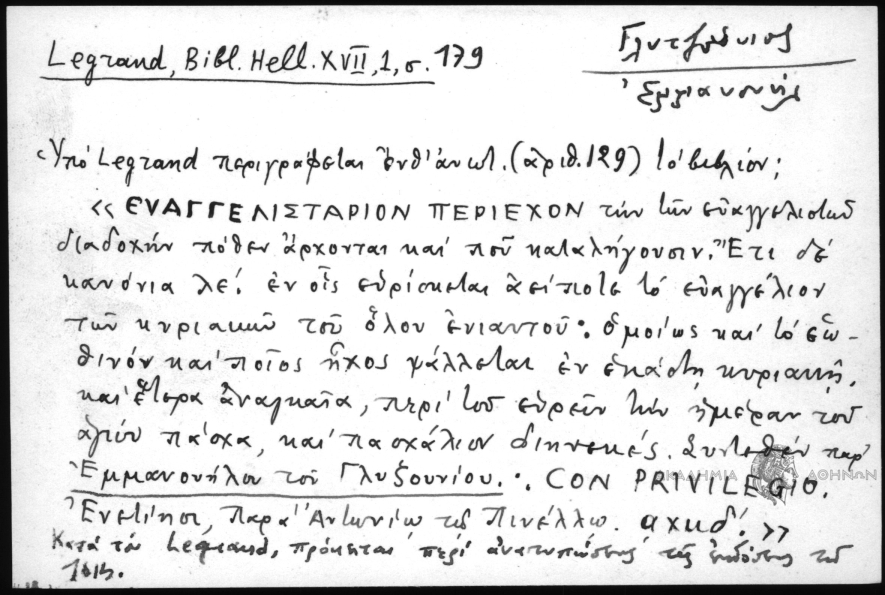 Legrand, Bibl. Hell. XVII, 1, σ. 179
Γλυτζούνιος
Ἐμμανουήλ
Ὑπό Legrand περιγράφεται ἐνθ' ἀνωτ. (ἀριθ. 129) τό βιβλίον:
«ΕΥΑΓΓΕΛΙΣΤΑΡΙΟΝ ΠΕΡΙΕΧΟΝ τήν τῶν εὐαγγελιστῶν
διαδοχήν πόθεν ἄρχονται καί ποῦ καταλήγουσιν. Ἔτι δέ
κανόνια λε΄. ἐν οἷς εὑρίσκεται ἀείποτε τό εὐαγγέλιον
τῶν κυριακῶν τοῦ ὅλου ἐνιαυτοῦ ∴ ὁμοίως καί τό ἑω-
θινόν καί ποῖος ἦχος ψάλλεται ἐν ἑκάστῃ κυριακῇ.
καί ἕτερα ἀναγκαῖα, περί τοῦ εὑρεῖν τήν ἡμέραν τοῦ
ἁγίου πάσχα, καί πασχάλιον διηνεκές. Συντεθέν παρ'
Ἐμμανουήλου τοῦ Γλυζουνίου. ∴ CON PRIVILEGIO.
ΑΚΑΔΗΜΙΑ ΑΘΗΝΩΝ
Ἐνετίησι, Παρά Ἀντωνίῳ τῷ Πινέλλῳ. αχκδ΄. »
Κατά τόν Legrand, πρόκειται περί ἀνατυπώσεως τῆς ἐκδόσεως τοῦ